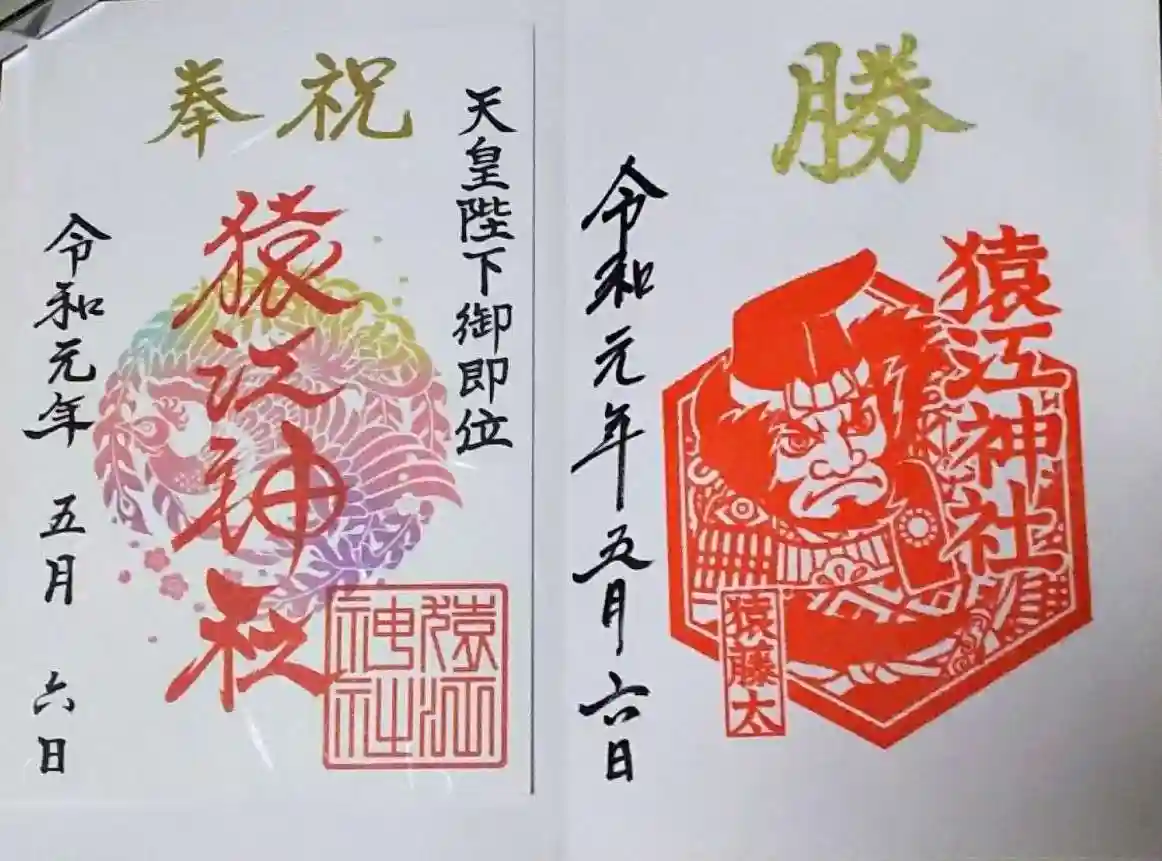 奉祝
天皇陛下御即位
猿江神社
令和元年 五月 六日
猿江神社
勝
猿江神社
令和元年五月六日
猿藤太